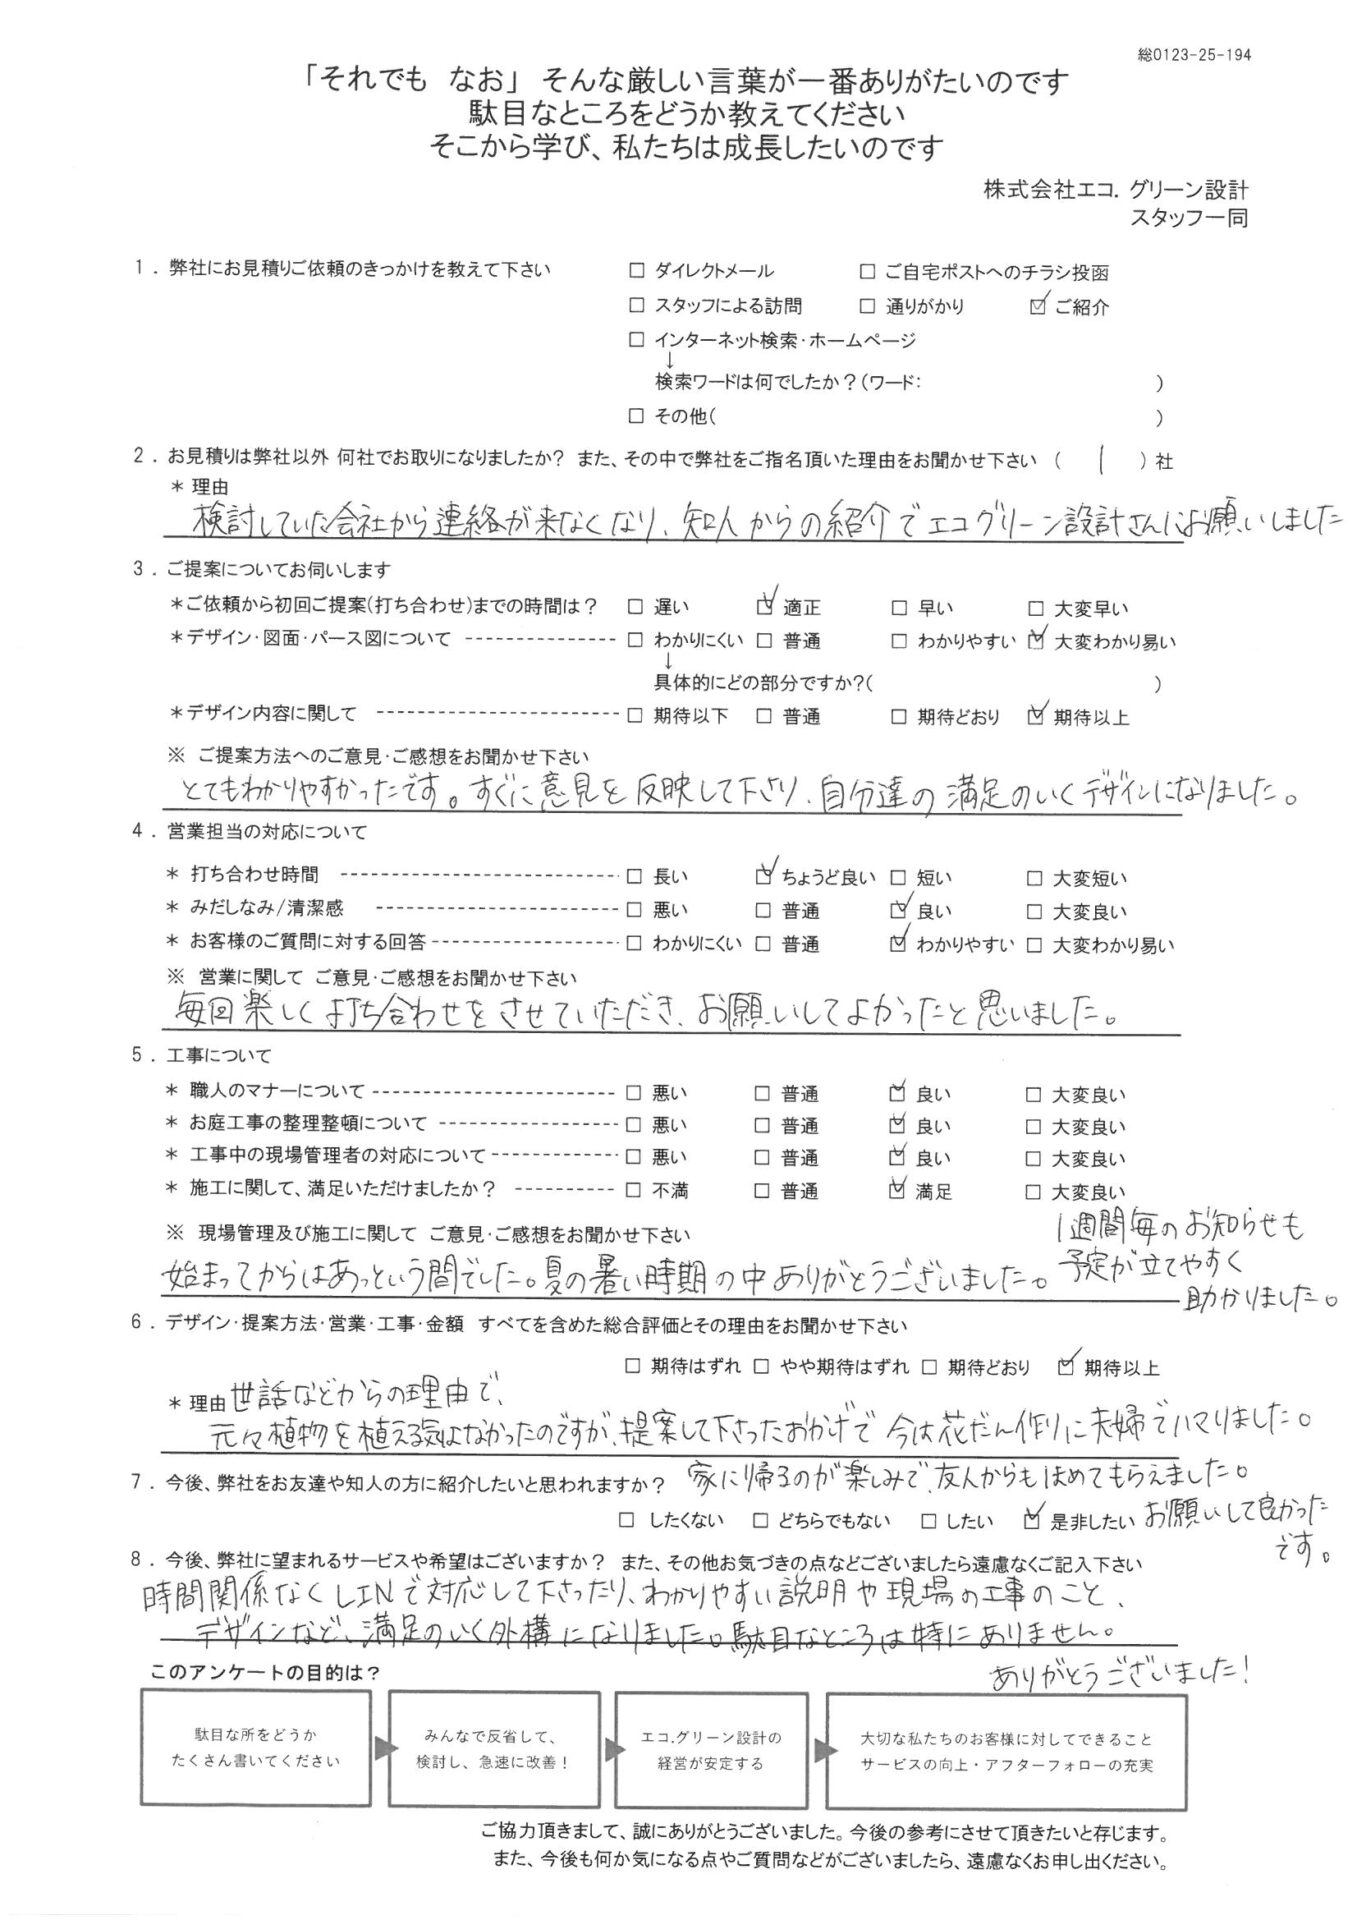 総0123-25-194
「それでも なお」 そんな厳しい言葉が一番ありがたいのです
駄目なところをどうか教えてください
そこから学び、私たちは成長したいのです
株式会社エコ．グリーン設計
スタッフ一同
1．弊社にお見積りご依頼のきっかけを教えて下さい □ ダイレクトメール □ ご自宅ポストへのチラシ投函
□ スタッフによる訪問 □ 通りがかり ☑ ご紹介
□ インターネット検索・ホームページ
↓
検索ワードは何でしたか？（ワード： ）
□ その他（ ）
2．お見積りは弊社以外 何社でお取りになりましたか？ また、その中で弊社をご指名頂いた理由をお聞かせ下さい （ 1 ）社
＊ 理由
検討していた会社から連絡が来なくなり、知人からの紹介でエコグリーン設計さんにお願いしました
3．ご提案についてお伺いします
＊ご依頼から初回ご提案（打ち合わせ）までの時間は？ □ 遅い ☑ 適正 □ 早い □ 大変早い
＊デザイン・図面・パース図について ---------------- □ わかりにくい □ 普通 □ わかりやすい ☑ 大変わかり易い
↓
具体的にどの部分ですか？（ ）
＊デザイン内容に関して ---------------- □ 期待以下 □ 普通 □ 期待どおり ☑ 期待以上
※ ご提案方法へのご意見・ご感想をお聞かせ下さい
とてもわかりやすかったです。すぐに意見を反映して下さり、自分達の満足のいくデザインになりました。
4．営業担当の対応について
＊ 打ち合わせ時間 ---------------- □ 長い ☑ ちょうど良い □ 短い □ 大変短い
＊ みだしなみ/清潔感 ---------------- □ 悪い □ 普通 ☑ 良い □ 大変良い
＊ お客様のご質問に対する回答---------------- □ わかりにくい □ 普通 ☑ わかりやすい □ 大変わかり易い
※ 営業に関して ご意見・ご感想をお聞かせ下さい
毎回楽しく打ち合わせをさせていただき、お願いしてよかったと思いました。
5．工事について
＊ 職人のマナーについて---------------- □ 悪い □ 普通 ☑ 良い □ 大変良い
＊ お庭工事の整理整頓について ---------------- □ 悪い □ 普通 ☑ 良い □ 大変良い
＊ 工事中の現場管理者の対応について------------ □ 悪い □ 普通 ☑ 良い □ 大変良い
＊ 施工に関して、満足いただけましたか？ ---------- □ 不満 □ 普通 ☑ 満足 □ 大変良い
※ 現場管理及び施工に関して ご意見・ご感想をお聞かせ下さい
始まってからはあっという間でした。夏の暑い時期の中ありがとうございました。
1週間毎のお知らせも
予定が立てやすく
助かりました。
6．デザイン・提案方法・営業・工事・金額 すべてを含めた総合評価とその理由をお聞かせ下さい
□ 期待はずれ □ やや期待はずれ □ 期待どおり ☑ 期待以上
＊ 理由 世話などからの理由で、
元々植物を植える気はなかったのですが、提案して下さったおかげで今は花だん作りに夫婦でハマりました。
家に帰るのが楽しみで、友人からもほめてもらえました。
お願いして良かった
です。
7．今後、弊社をお友達や知人の方に紹介したいと思われますか？
□ したくない □ どちらでもない □ したい ☑ 是非したい
8．今後、弊社に望まれるサービスや希望はございますか？ また、その他お気づきの点などございましたら遠慮なくご記入下さい
時間関係なくLINで対応して下さったり、わかりやすい説明や現場の工事のこと、
デザインなど、満足のいく外構になりました。駄目なところは特にありません。
ありがとうございました！
このアンケートの目的は？
駄目な所をどうか
たくさん書いてください
みんなで反省して、
検討し、急速に改善！
エコ.グリーン設計の
経営が安定する
大切な私たちのお客様に対してできること
サービスの向上・アフターフォローの充実
ご協力頂きまして、誠にありがとうございました。今後の参考にさせて頂きたいと存じます。
また、今後も何か気になる点やご質問などがございましたら、遠慮なくお申し出ください。